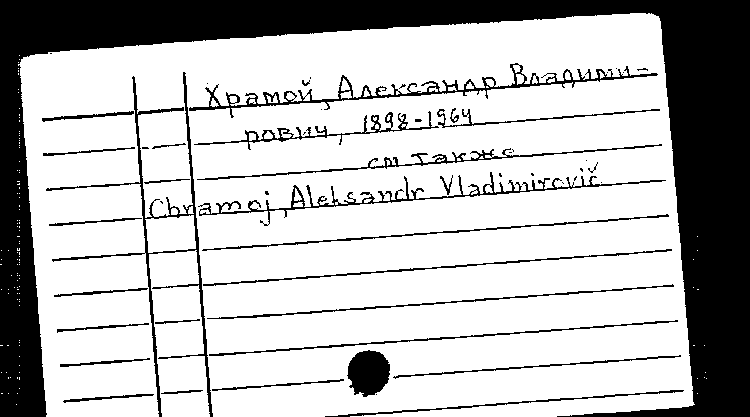 Храмой, Александр Владими-
рович, 1898-1964
см также
Chramoj, Aleksandr Vladimirovič